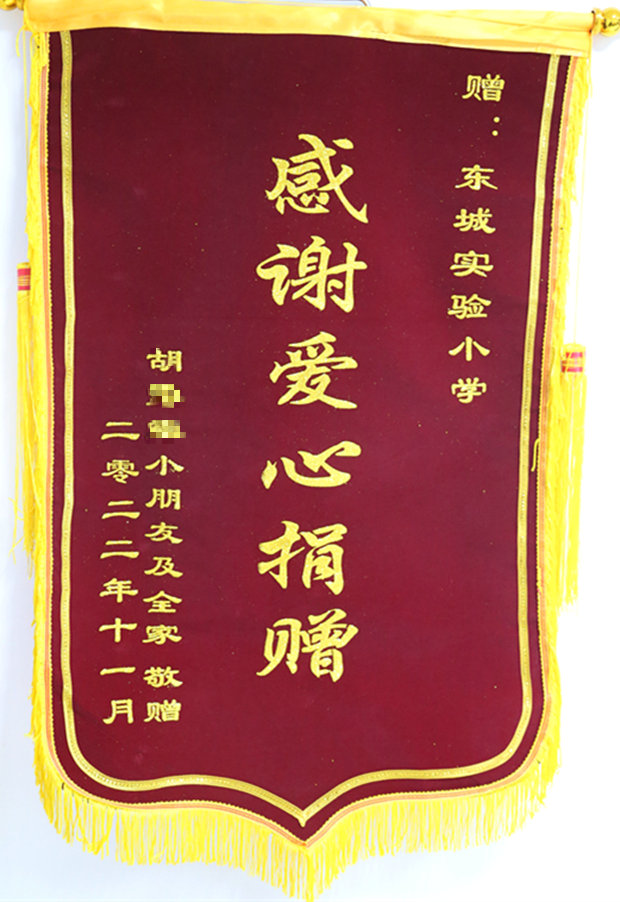 赠：东城实验小学
感谢爱心捐赠
胡小朋友及全家 敬赠
二零二二年十一月